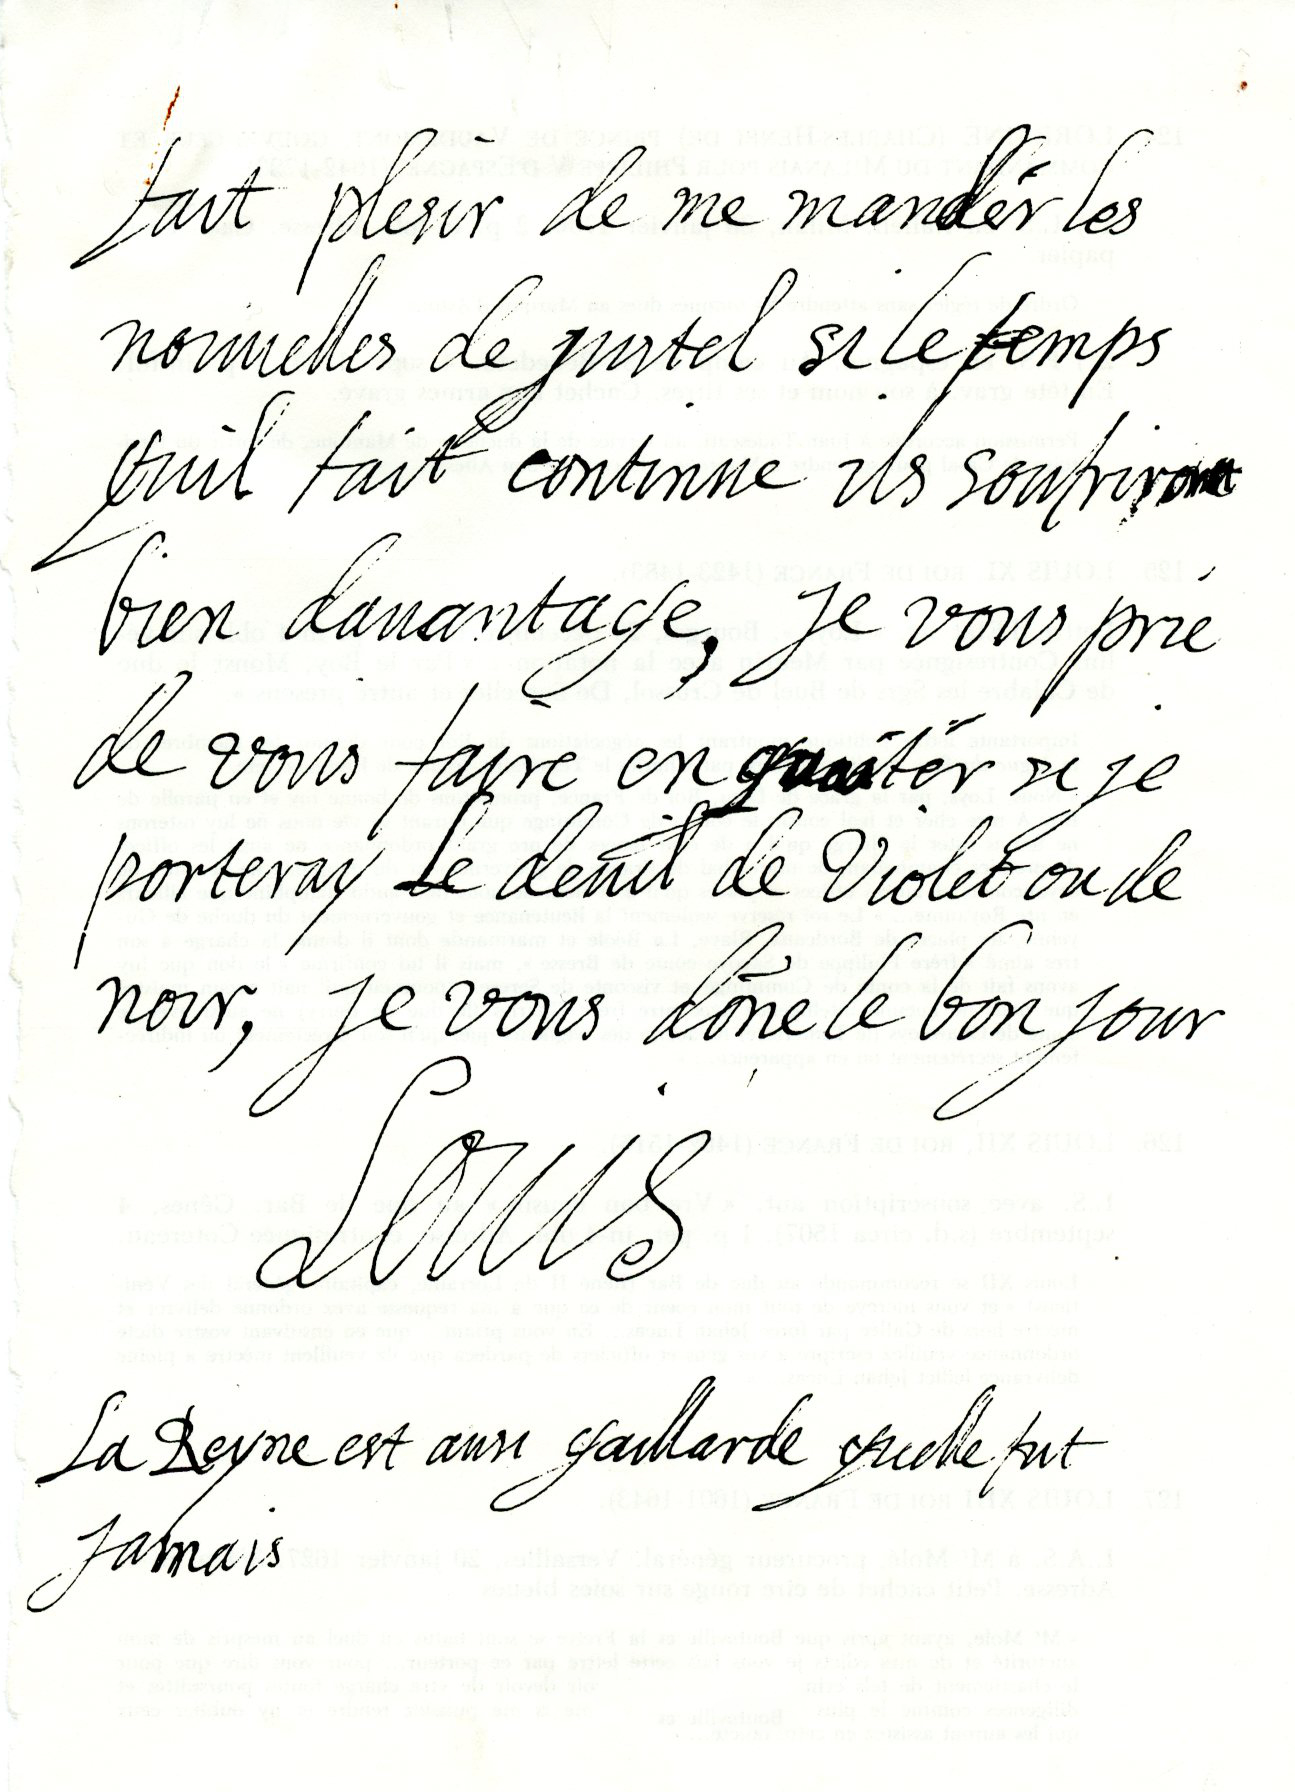 fait plesir de me mander les
nouuelles de Jurtel si le temps
quil fait continue ils soufriront
bien dauantage, je vous prie
de vous faire enquiter si je
porteray le deuil de violet ou de
noir, je vous dône le bon jour
Louis
La Reyne est ausi gaillarde quelle fut
jamais